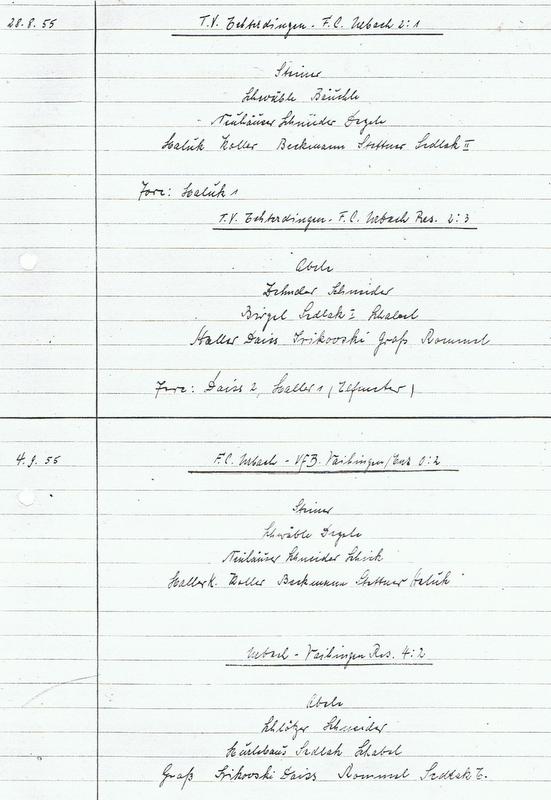 28.8.55
T.V. Echterdingen - F.C. Urbach 2:1
Steiner
Schwäble Bäuchle
Neuhäuser Schneider Degele
Haluk Koller Beckmann Stettner Sedlak II
Tore: Haluk 1
T.V. Echterdingen - F.C. Urbach Res. 2:3
Abele
Zehnder Schneider
Bürgel Sedlak I Schabel
Haller Daiss Srikovski Groß Rommel
Tore: Daiss 2, Haller 1 (Elfmeter)
4.9.55
F.C. Urbach - VfB. Vaihingen/Enz 0:2
Steiner
Schwäble Degele
Neuhäuser Schneider Schick
Haller K. Koller Beckmann Stettner Haluk
Urbach - Vaihingen Res. 4:2
Abele
Schlötzer Schneider
Sedlak Schabel
Groß Srikovski Daiss Rommel Sedlak